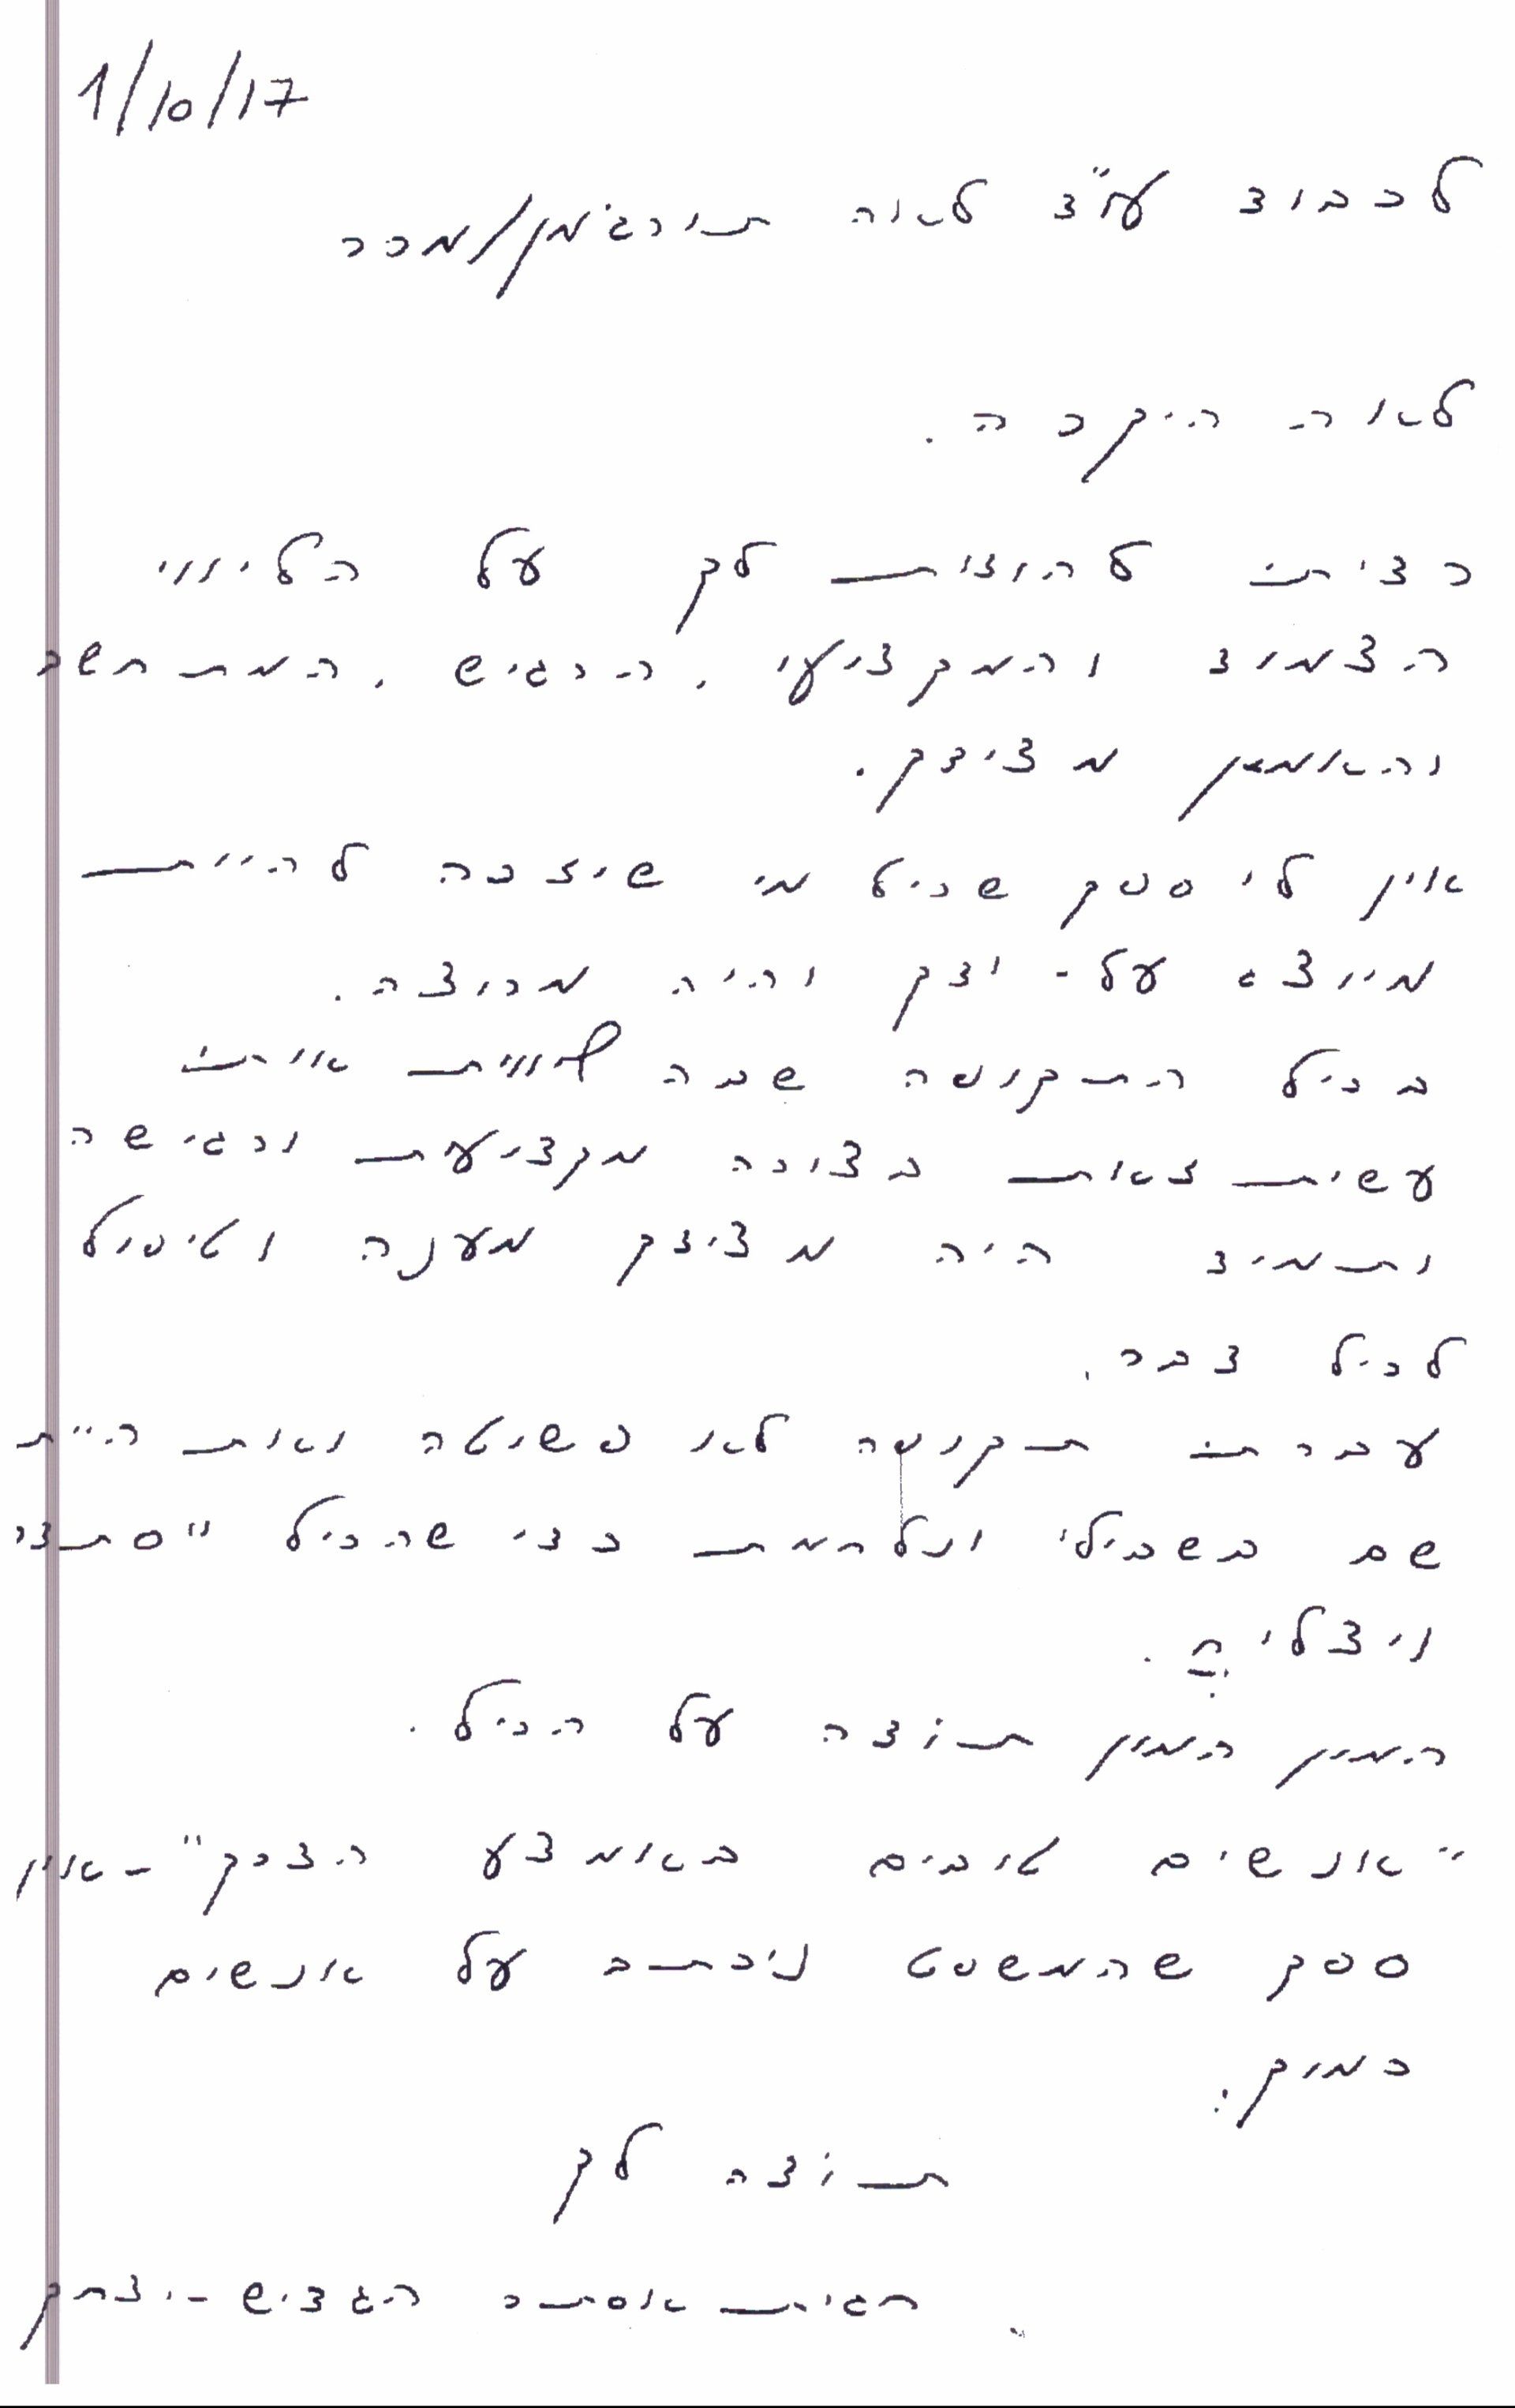 1/10/17
לכבוד עו"ד לאה תורג'מן/מכר
לאה היקרה.
רציתי להודות לך על הליווי
הצמוד והמקצועי, הרגיש, המתחשב
והאמין מצידך.
אין לי ספק שכל מי שיזכה להיות
מיוצג על-ידך יהיה מרוצה.
בכל התקופה שבה ליווית אותי
עשית זאת בצורה מקצועית ורגישה
ותמיד היה מצידך מענה וטיפול
לכל דבר.
עברתי תקופה לא פשוטה ואת היית
שם בשבילי ונלחמת כדי שהכל "סתדר
ויצליח.
המון המון תודה על הכל.
"אנשים טובים באמצע הדרך" - אין
ספק שהמשפט נכתב על אנשים
כמוך.
תודה לך
חגית אסתר הגדיש-יצחק